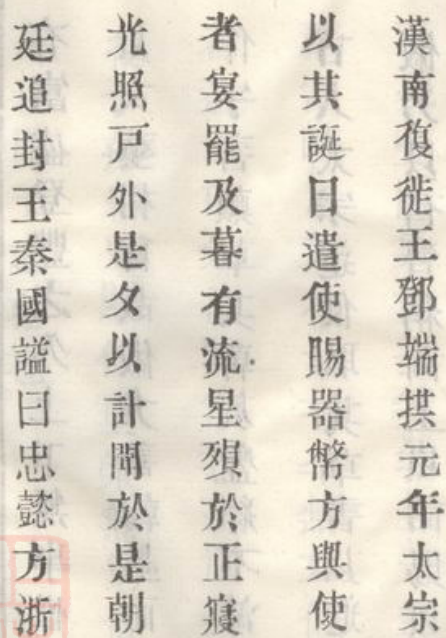 漢南復徙王鄧端拱元年太宗
以其誕日遣使賜器幣方與使
者宴罷及暮有流星殞於正寢
光照戸外是夕以計聞於是朝
廷追封王秦國謚曰忠懿方浙